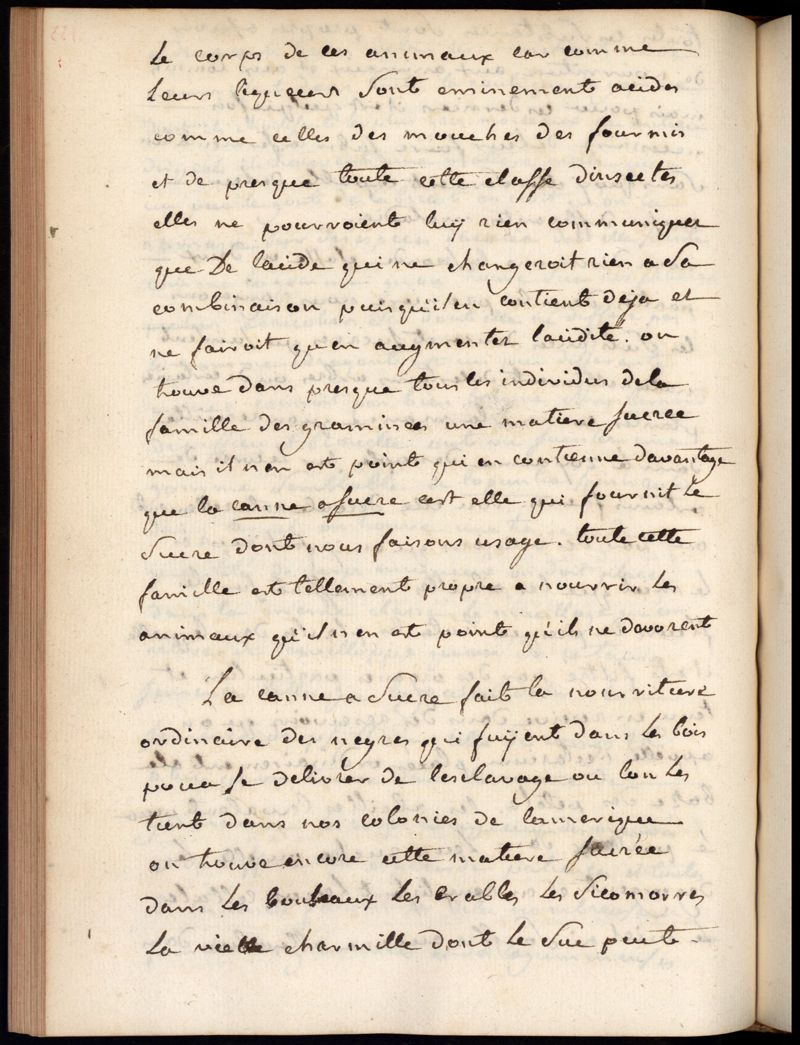 Le corps de ces animaux car comme
Leurs liqueurs Sont eminement acides
comme celles des mouches des fourmis
et de presque toute cette classe dinsectes
elles ne pourroient luÿ rien communiquer
que De lacide qui ne changeroit rien a Sa
combinaison puisqu'il en contient deja et
ne fairoit qu'en augmenter lacidité. on
trouve dans presque tous les individus de la
famille des graminées une matiere sucree
mais il n'en est point qui en contienne davantage
que la canne a sucre cest elle qui fournit le
Sucre dont nous faisons usage. toute cette
famille est tellement propre a nourrir les
animaux qu'il n'en est point qu'ils ne devorent
La canne a Sucre fait la nourriture
ordinaire des negres qui fuÿent dans les bois
pour se delivrer de lesclavage ou lon les
tient dans nos colonies de lamerique
on trouve encore cette matiere sucrée
dans les bouleaux les erables les Sicomorres
La vielle charmille dont le Suc peut.